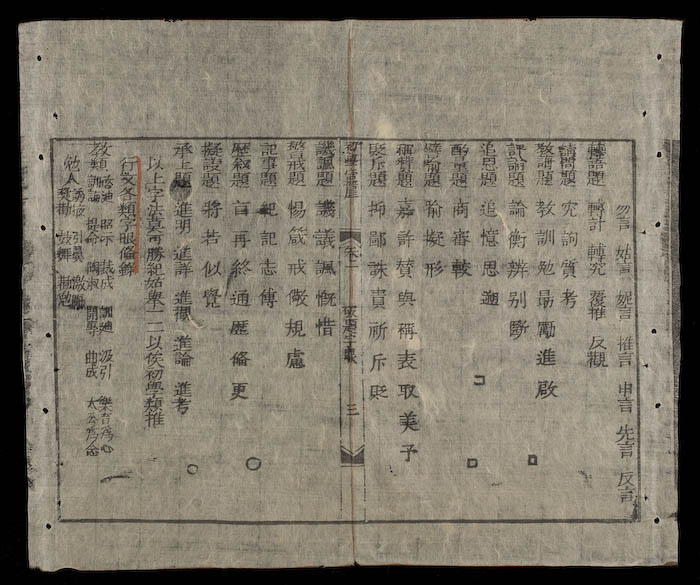 勿言 姑言 婉言 推言 申言 先言 反言
轉語題 轉計 轉究 覆推 反觀
請問題 究詢質考
教訓題 教訓勉勗勵進啟
評論題 論衡辨别斷
追思題 追憶思遡
酌量題 商審較
譬喻題 喻擬形
稱釋題 嘉許贊與稱表取美予
貶斥題 抑鄙誅責祈斥貶
卷一
三
譏諷題 譏議諷慨惜
警戒題 惕箴戒儆規慮
記事題 紀記志傳
歷叙題 亘再終通歷俻更
擬設題 將若似覺
承上題 進明 進詳 進觀 進論 進考
以上字法莫可勝紀姑舉一二以俟初學類推
行文各類字眼俻錄
教類 誘迪 昭示 裁成 訓迪 汲引 樂育爲心
訓誨 提命 陶淑 開導 曲成 太公爲念
勉人 誘掖 引翼 激
提撕 鼓舞